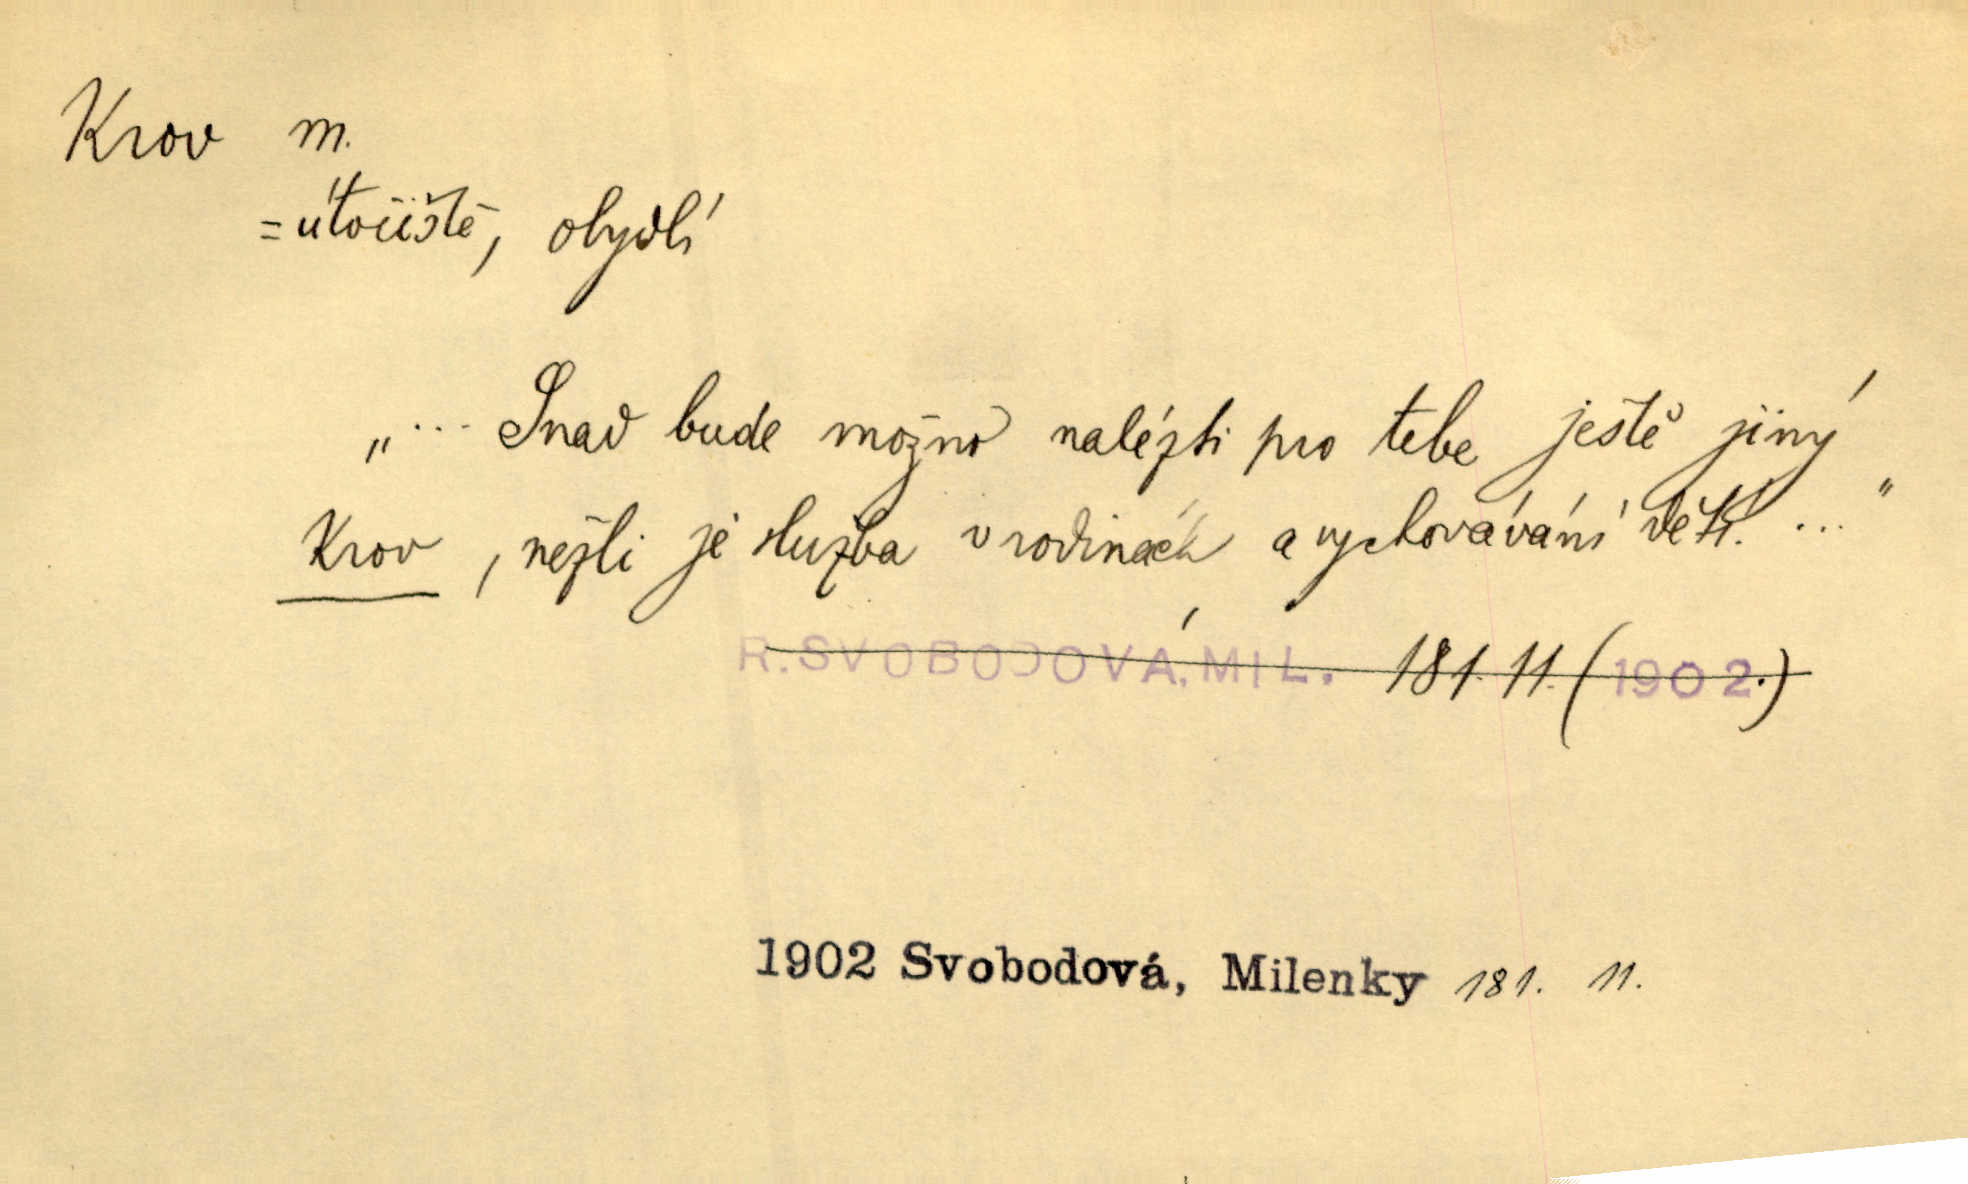 Krov m.
= útočiště, obydlí
„... Snad bude možno nalézti pro tebe ještě jiný
krov, nežli je služba v rodinách a vychovávání dětí. ..."
R. SVOBODOVÁ, MIL. 181. 11. (1902.)
1902 Svobodová, Milenky 181. 11.